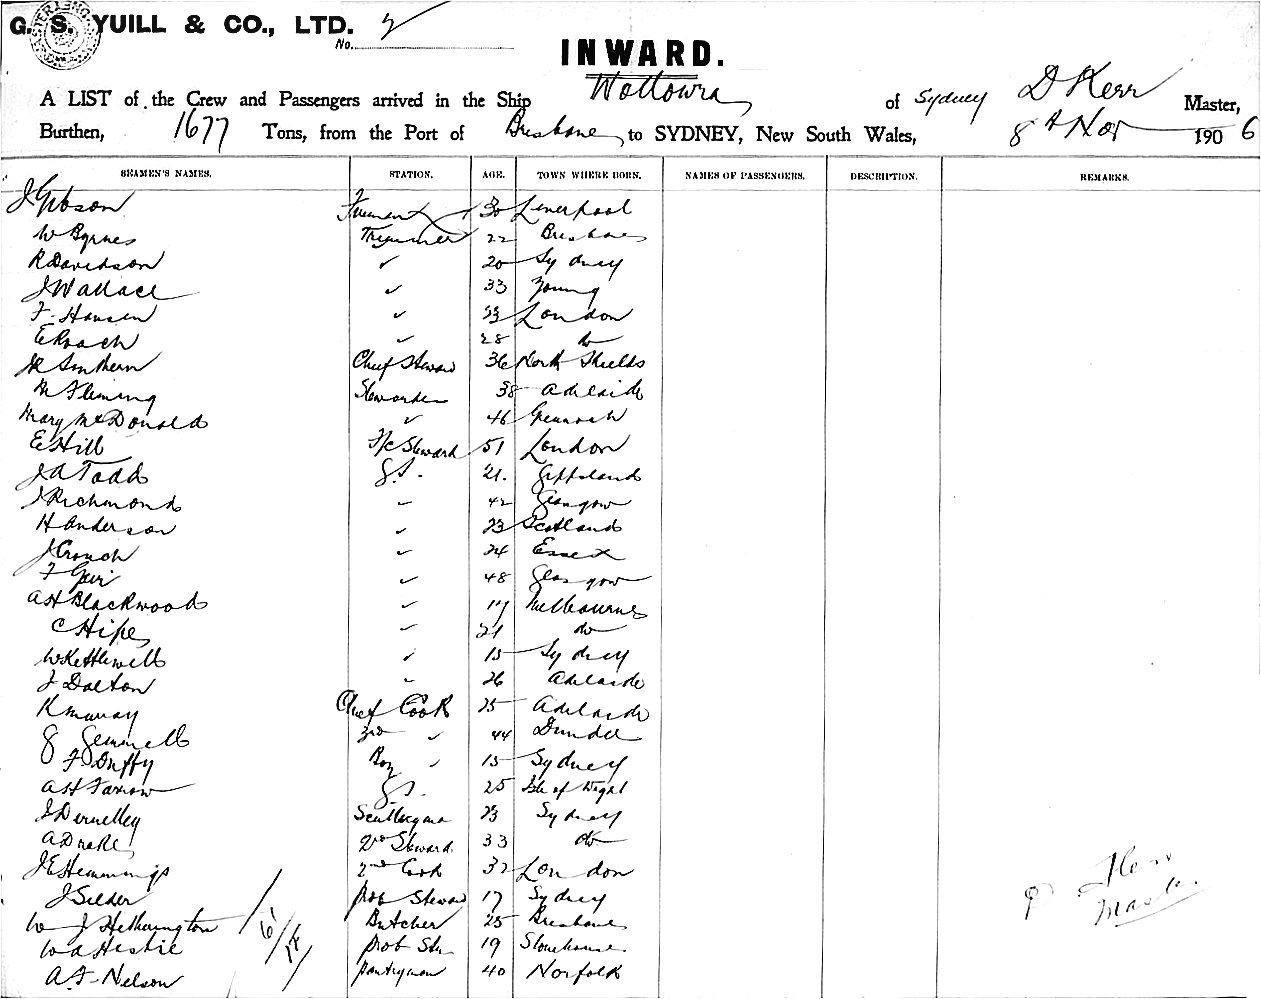 G. S. YUILL & CO., LTD.
No. 2
INWARD.
A LIST of the Crew and Passengers arrived in the Ship Wollowra of Sydney D Kerr Master,
Burthen, 1677 Tons, from the Port of Brisbane to SYDNEY, New South Wales, 8th Nov 1906
SEAMEN'S NAMES. STATION. AGE. TOWN WHERE BORN. NAMES OF PASSENGERS. DESCRIPTION. REMARKS.
J Gibson Fireman 30 Liverpool
W Byrnes Trimmer 22 Brisbane
R Davidson " 20 Sydney
J Wallace " 33 Young
F. Hansen " 33 London
E Roach " 28 do
Chief Steward 36 North Shields
M Fleming Stewardess 38 Adelaide
Mary McDonald " 46 Greenock
E Hill F/C Steward 51 London
J A Todd G.S. 21. Gippsland
J Richmond " 42 Glasgow
H Anderson " 23 Scotland
J Crouch " 24 Essex
F " 48 Glasgow
A H Blackwood " 17 Melbourne
C Hipe " 21 do
W Kettlewell " 15 Sydney
J Dalton " 26 Adelaide
K Murray Chief Cook 25 Adelaide
G Gemmell 3rd " 44 Dundee
F Duffy Boy " 15 Sydney
A H Farrow G.S. 25 Isle of Wight
J Sculleryman 23 Sydney
A Drake 2nd Steward 33 do
J E Hemmings 2nd Cook 32 London
J Selder prob Steward 17 Sydney
W J Hetherington Butcher 25 Brisbane
W A prob Stw 19 Stonehouse
A. F. Nelson pantryman 40 Norfolk
D Kerr
Master